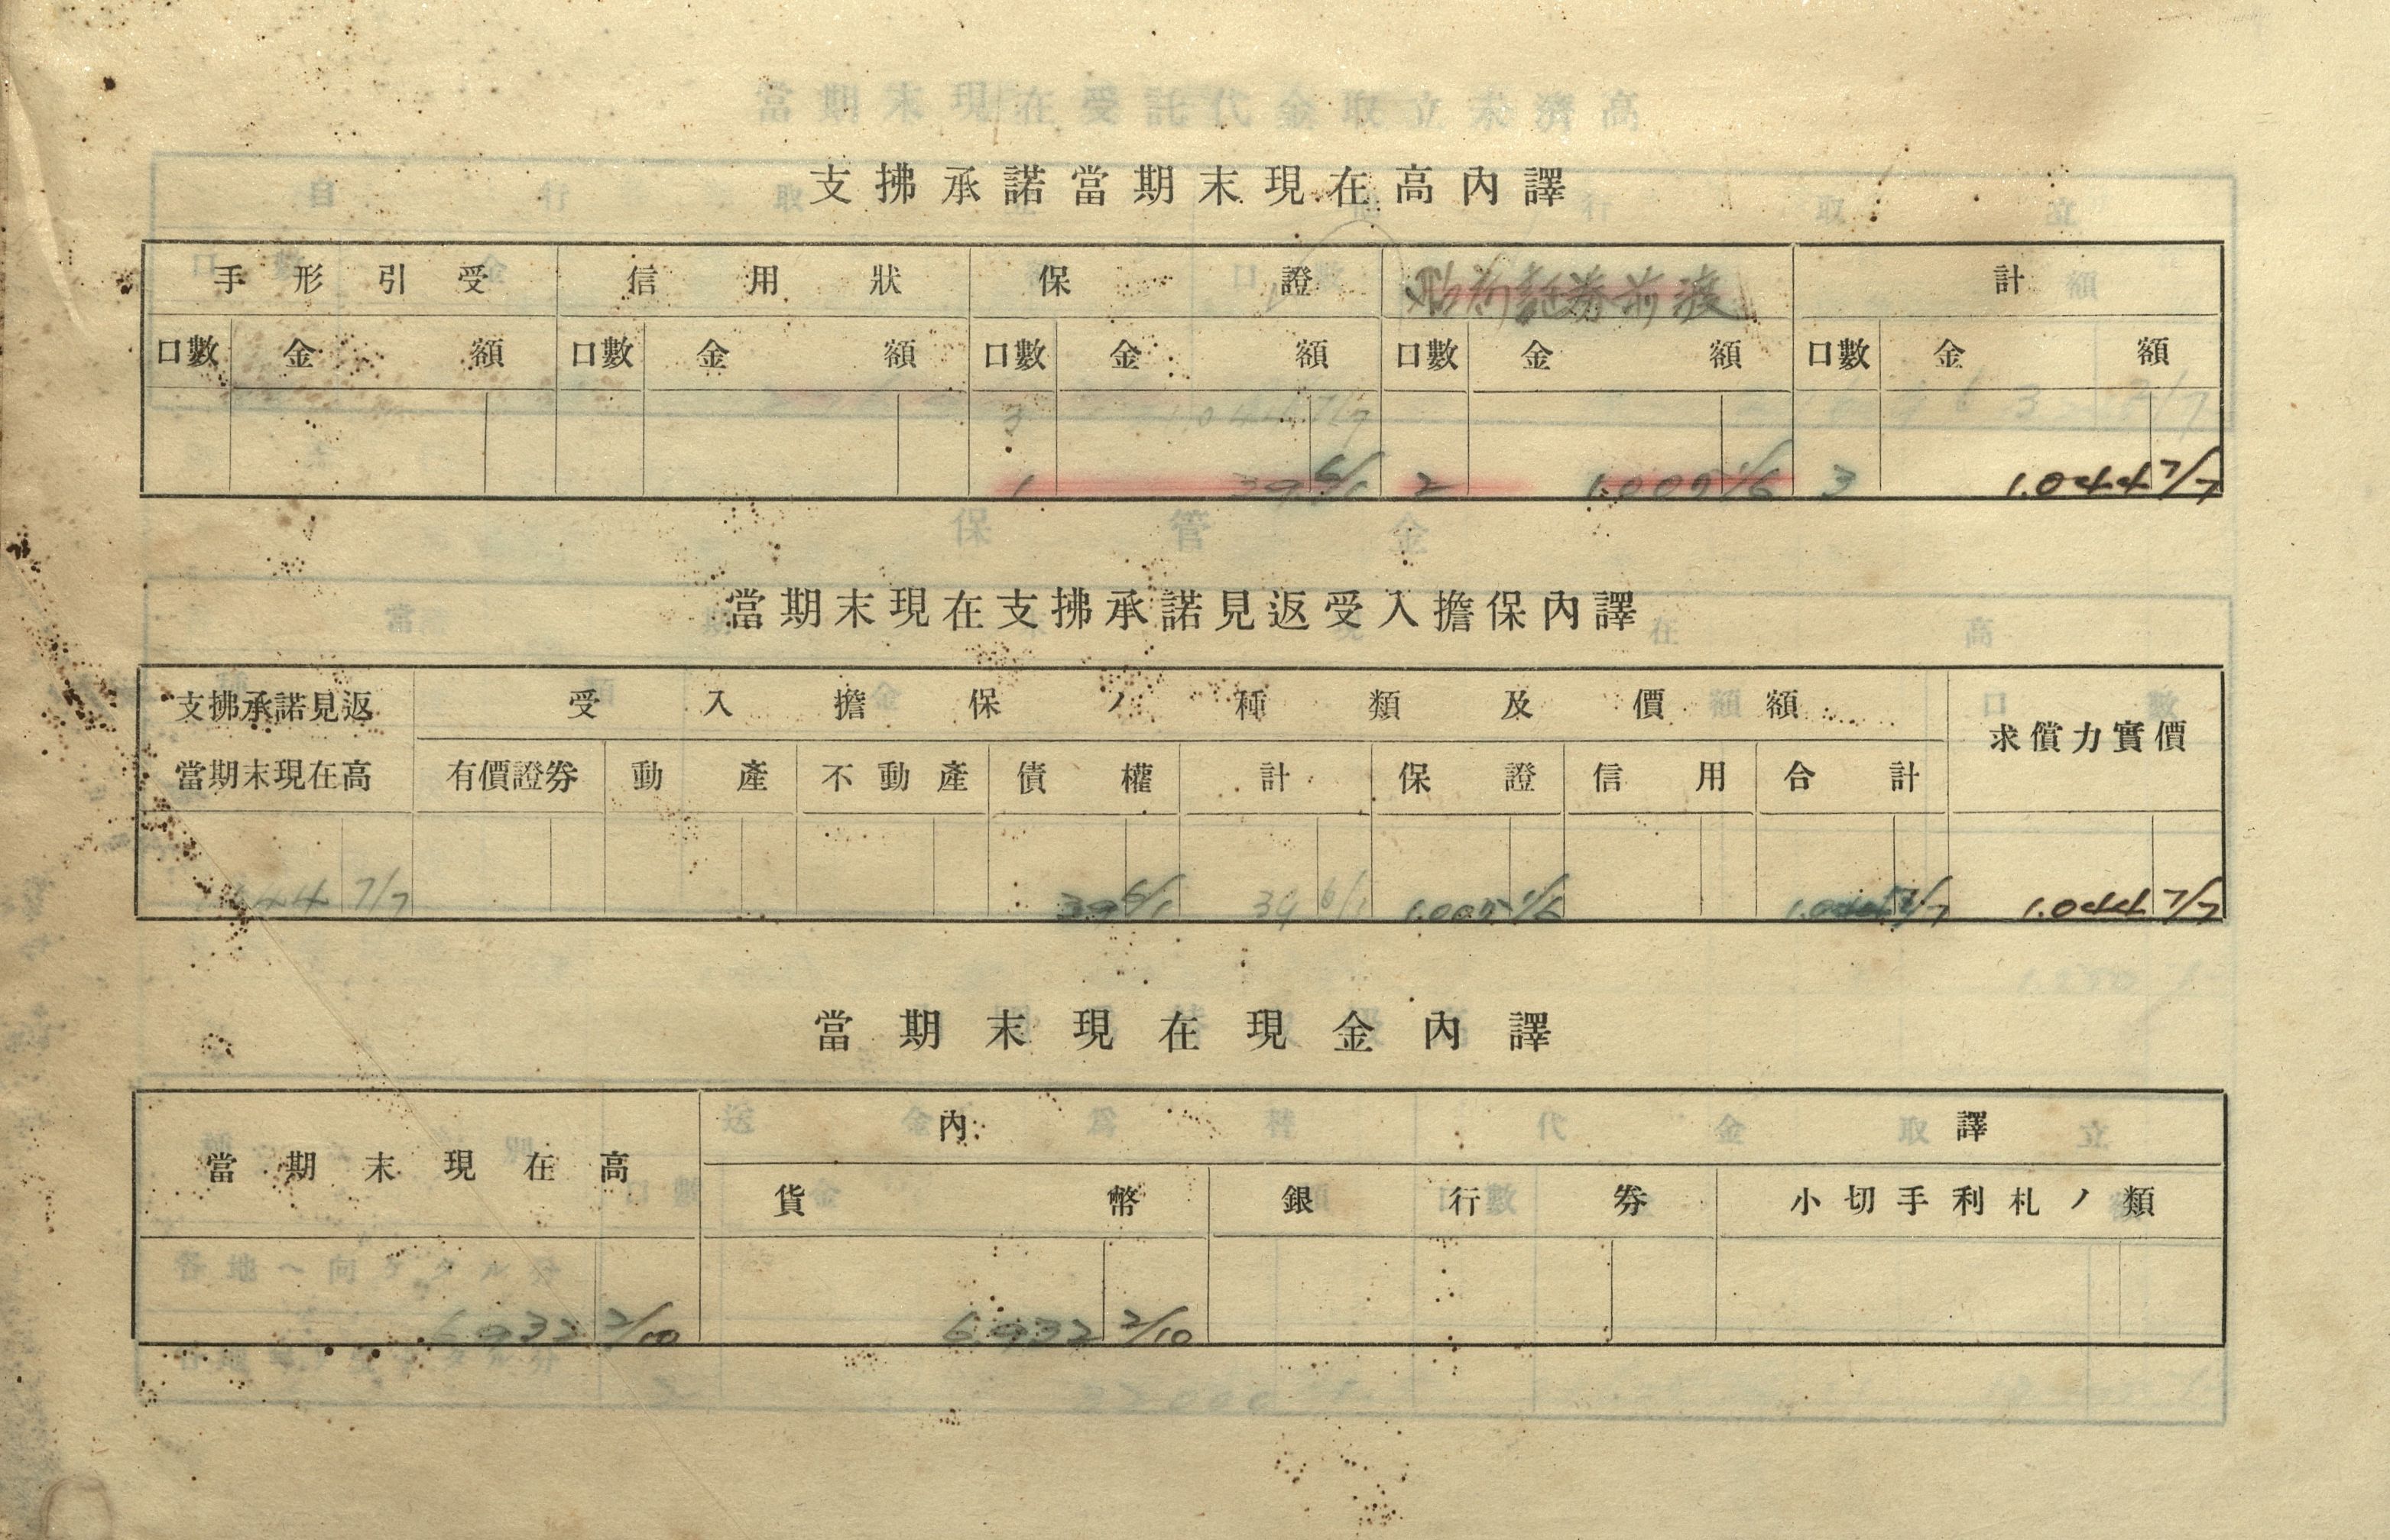 支拂承諾當期末現在高內譯
手形引受 信用狀 保證 計
口數 金額 口數 金額 口數 金額 口數 金額 口數 金額
3 1.044 7/7
1 39 6/1 2 1.005 1/6 3 1.044 7/7
當期末現在支拂承諾見返受入擔保內譯
支拂承諾見返 受入擔保ノ種類及價額 求償力實價
當期末現在高 有價證券 動產 不動產 債權 計 保證 信用 合計
44 7/7 39 6/1 39 6/1 1.005 1/6 1.044 7/7 1.044 7/7
當期末現在現金內譯
當期末現在高 內譯
貨幣 銀行券 小切手利札ノ類
6.932 2/10 6.932 2/10